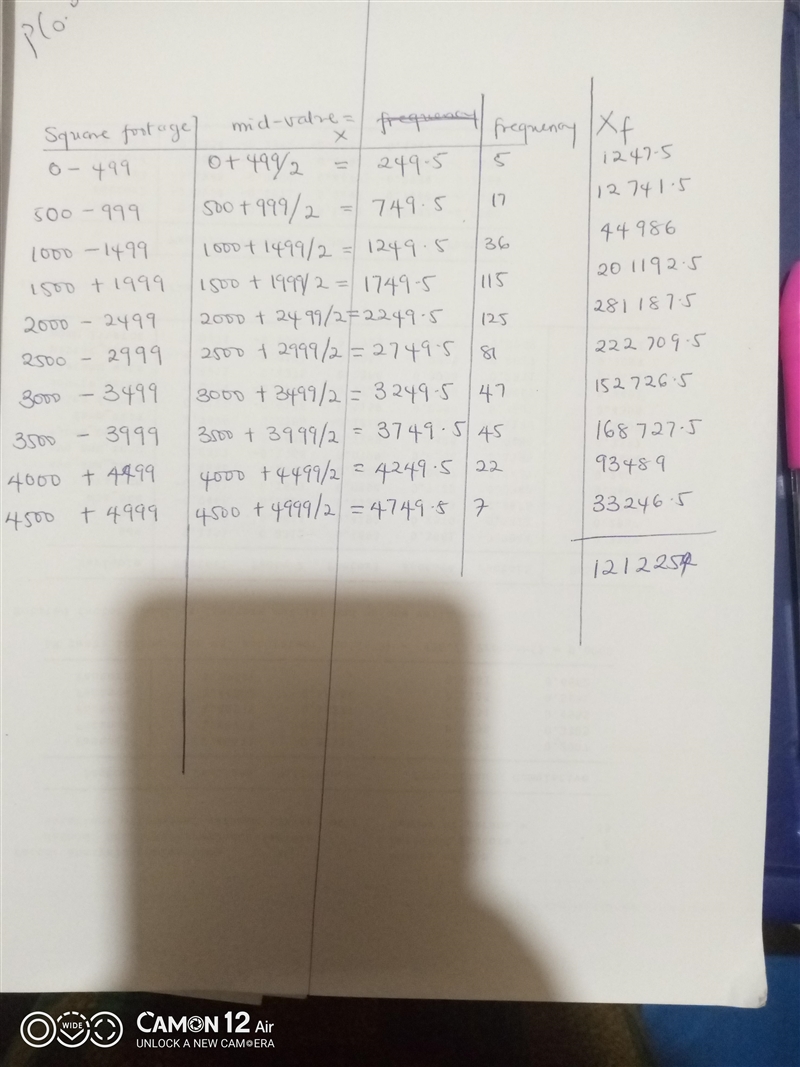 p(o.
Square footage mid-value = x frequency frequency Xf
0 - 499 0 + 499/2 = 249.5 5 1247.5
500 - 999 500 + 999/2 = 749.5 17 12741.5
1000 - 1499 1000 + 1499/2 = 1249.5 36 44986
1500 + 1999 1500 + 1999/2 = 1749.5 115 201192.5
2000 - 2499 2000 + 2499/2 = 2249.5 125 281187.5
2500 - 2999 2500 + 2999/2 = 2749.5 81 222709.5
3000 - 3499 3000 + 3499/2 = 3249.5 47 152726.5
3500 - 3999 3500 + 3999/2 = 3749.5 45 168727.5
4000 + 4499 4000 + 4499/2 = 4249.5 22 93489
4500 + 4999 4500 + 4999/2 = 4749.5 7 33246.5
WIDE CAMON 12 Air
UNLOCK A NEW CAMERA